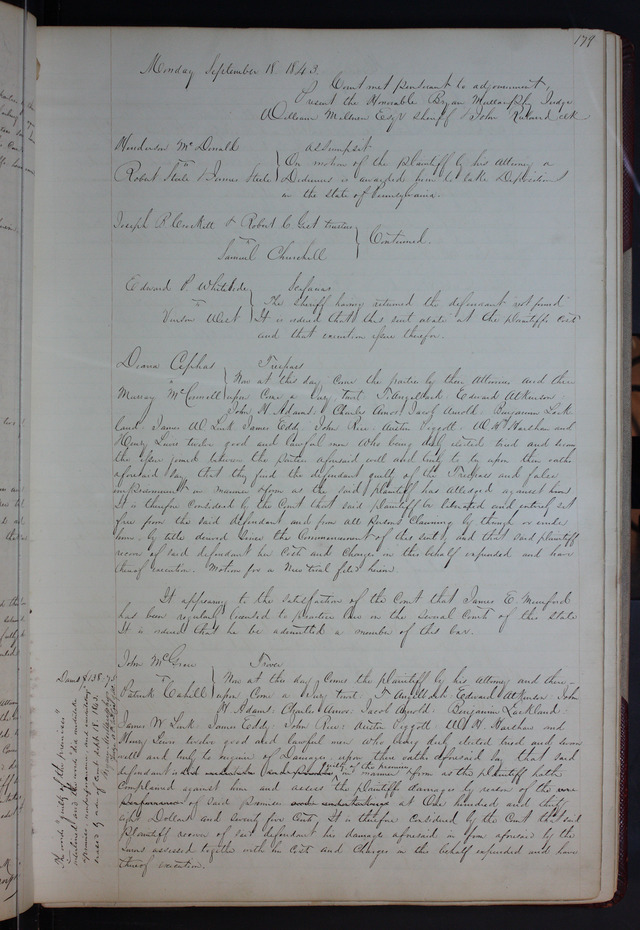 179
Monday September 18. 1843.
Court met pursuant to adjournment
Present the Honorable Bryan Mullanphy Judge
William Milburn Esqr Sheriff & John Ruland Clk
Henderson McDonald assumpsit
vs On motion of the plaintiff by his attorney a
Robert Steele & James Steele Dedimus is awarded him to take Depositions
in the State of Pennsylvania.
Joseph R Crockett & Robert C. Gest trustees
vs Continued.
Samuel Churchill
Edward P. Whiteside Scifacias
vs The Sheriff having returned the defendant not found
Vinson West It is ordered that this suit abate at the plaintiffs cost
and that execution issue therefor.
Diana Cephas Trespass
vs Now at this day come the parties by their attornies, and there
Murray McConnell upon Came a Jury, to wit: Edward Atkinson
John H Adams: Charles Amos: Jacob Arnold: Benjamin Lack
land: James W. Link James Eddy: John Rice: Austin Piggott: W. H. Harsham and
Henry Lewis twelve good and lawful men who being duly elected tried and sworn
the issue joined between the parties aforesaid well and truly to try upon their oaths
aforesaid say that they find the defendant guilty of the Trespass and false
imprisonment in manner & form as the said plaintiff has alledged against him
It is therefore considered by the Court that said plaintiff be liberated and entirely set
free from the said defendant and from all persons Claiming by through or under
him by title derived since the Commencement of this suit, and that said plaintiff
recover of said defendant her Costs and Charges in this behalf expended and have
thereof execution. Motion for a New trial filed herein.
It appearing to the satisfaction of the Court that James E. Mumford
has been regularly licensed to practice law in the several Courts of this State
It is ordered that he be admitted a member of this bar.
John McGrew Trover
vs Now at this day Comes the plaintiff by his attorney and there-
Patrick Cahill upon Came a Jury to wit: Edward Atkinson John
H Adams: Charles Amos: Jacob Arnold: Benjamin Lackland:
James W. Link: James Eddy: John Rice: Austin Piggott: W. H. Harsham and
Henry Lewis twelve good and lawful men who being duly elected tried and sworn
well and truly to enquire of Damages upon their oaths aforesaid say that said
defendant is guilty of the premises in manner & form as the plaintiff hath
complained against him and assess the plaintiff damages by reason of the
of said premises at One hundred and thirty
eight Dollars and seventy five Cents. It is therefore considered by the Court that said
Plaintiff recover of said defendant his damages aforesaid in form aforesaid by the
Jurors assessed together with his Costs and Charges in this behalf expended and have
thereof execution.
Dams $138.75
The words "guilty of the premises"
interlined and the words "did undertake